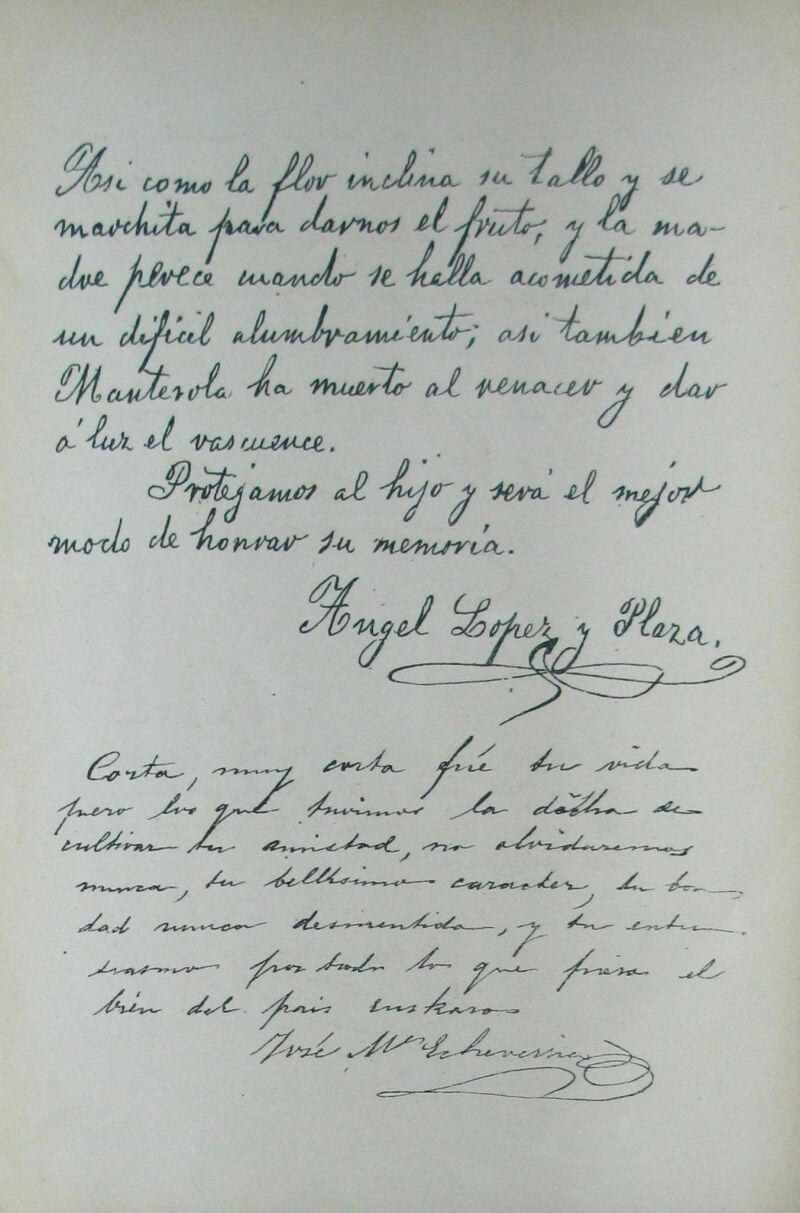 Asi como la flor inclina su tallo y se
marchita para darnos el fruto, y la ma-
dre perece cuando se halla acometida de
un dificil alumbramiento; asi tambien
Manterola ha muerto al renacer y dar
á luz el vascuence.
Protejamos al hijo y será el mejor
modo de honrar su memoria.
Angel Lopez y Plaza.
Corta, muy corta fué tu vida
pero los que tuvimos la dicha de
cultivar tu amistad, no olvidaremos
nunca, tu bellisimo caracter, tu bon-
dad nunca desmentida, y tu entu-
siasmo por todo lo que fuera el
bién del pais euskaro
José Mª Echeverria